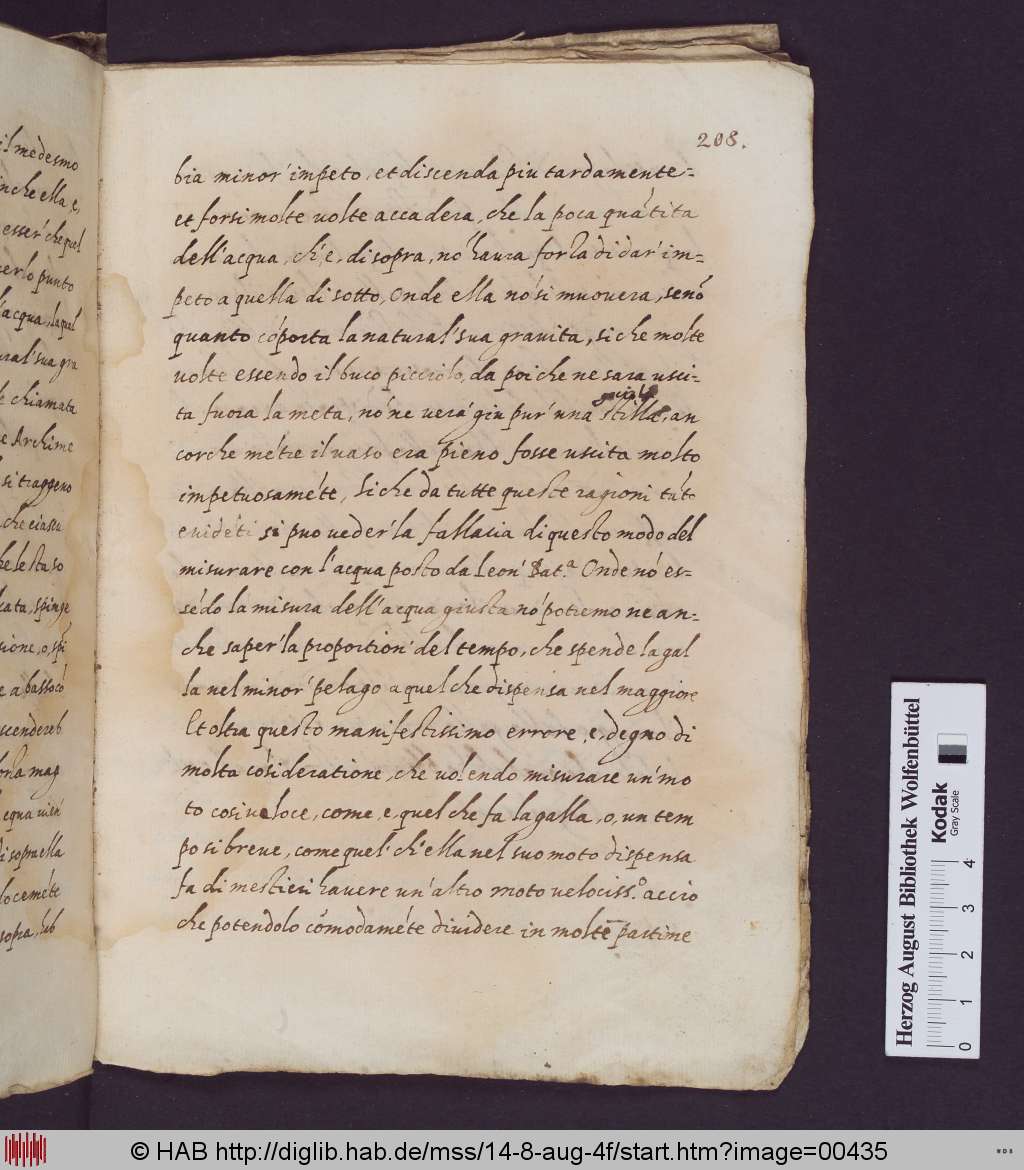 il medesmo
inche ella e,
esser' che quel
per lo punto
l'acqua, laql
ural' sua gra
e chiamata
e Archime
si traggeno
che ciascu
he le sta so
cata, spinge
sione, o, spi
e a basso cõ
scendereb
orza mag
l equa vien'
di sopra ella
loceméte
sopra, hab
208.
bia minor' impeto, et discenda piu tardamente-=
et forsi molte volte accadera, che la poca quátita
dell'acqua, ch', e, di sopra, nó haura forza di dar' im=
peto a quella di sotto, Onde ella nó si muovera, senõ
quanto cóporta la natural' sua gravita, si che molte
volte essendo il buco picciolo, da poi che ne sara usci=
ta fuora la meta, nó ne verá giu pur' una stilla, an
gociola
corche métre il vaso era pieno fosse uscita molto
impetuosaméte, Siche da tutte queste ragioni tút-
evidéti si puo veder' la fallacia di questo modo del
misurare con l'acqua posto da Leon' Bat.ª Onde nó es=
sédo la misura dell'acqua giusta nó potremo ne an=
che saper' la proportion' del tempo, che spende la gal
la nel minor' pelago a quel che dispensa nel maggiore
Et oltra questo manifestissimo errore, e, degno di
molta cósideratione, che volendo misurare un' mo
to cosi veloce, come, e, quel che fa la galla, o, un tem
po si breve, come quel' ch'ella nel suo moto dispensa
fa di mestieri havere un' altro moto velociss.º accio
che potendolo cõmodaméte dividere in molte partime
Herzog August Bibliothek Wolfenbüttel
Kodak
Gray Scale
0 1 2 3 4
© HAB http://diglib.hab.de/mss/14-8-aug-4f/start.htm?image=00435